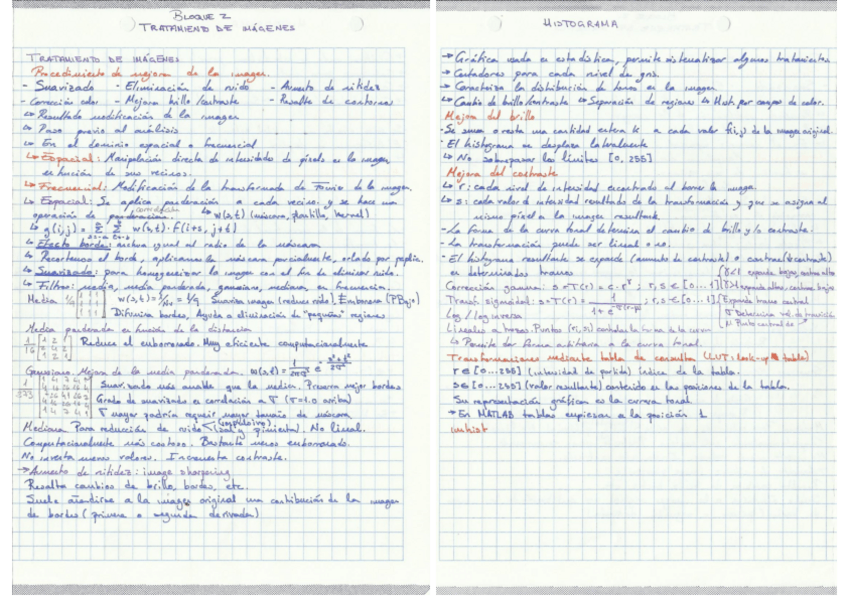 BLOQUE 2
TRATAMIENTO DE IMÁGENES
TRATAMIENTO DE IMÁGENES
Procedimiento de mejora de la imagen.
- Suavizado - Eliminación de ruido - Aumento de nitidez
- Corrección color - Mejora brillo/contraste - Resalte de contornos
↳ Resultado modificación de la imagen
↳ Paso previo al análisis
↳ En el dominio espacial o frecuencial
↳ Espacial: Manipulación directa de intensidades de píxeles en la imagen
en función de sus vecinos.
↳ Frecuencial: Modificación de la transformada de Fourier de la imagen.
↳ Espacial: Se aplica ponderación a cada vecino y se hace una
operación de ponderación. correlación ↳ w(s,t) (máscara, plantilla, kernel)
↳ g(i,j) = Σ Σ w(s,t)·F(i+s, j+t)
↳ Efecto borde: anchura igual al radio de la máscara
↳ Recortando el borde, aplicando máscara parcialmente, orlado por
↳ Suavizado: para homogeneizar la imagen con el fin de eliminar ruido.
↳ Filtros: media, media ponderada, gaussiano, mediana, en frecuencia.
Media 1/9 [1 1 1 / 1 1 1 / 1 1 1] w(s,t) = 1/N = 1/9 Suaviza imagen (reduce ruido). Emborrona (F. P Bajo)
Difumina bordes, Ayuda a eliminación de "pequeñas" regiones
Media ponderada en función de la distancia
1/16 [1 2 1 / 2 4 2 / 1 2 1] Reduce el emborronado. Muy eficiente computacionalmente
Gaussiano. Mejora de la media ponderada. w(s,t) =
Suavizado más amable que la media. Preserva mejor bordes
Grado de suavizado en correlación a σ (σ=1.0 arriba)
σ mayor podría requerir mayor tamaño de máscara
Mediana Para reducción de ruido < impulsivo (sal y pimienta). No lineal.
Computacionalmente más costoso. Bastante menos emborronado.
No inventa nuevos valores. Incrementa contraste.
→ Aumento de nitidez: image sharpening
Resalta cambios de brillo, bordes, etc.
Suele añadirse a la imagen original una contribución de la imagen
de bordes (primera o segunda derivada)
HISTOGRAMA
→ Gráfica usada en estadística, permite sistematizar algunos tratamientos
→ Contadores para cada nivel de gris.
→ Caracteriza la distribución de tonos en la imagen
↳ Cambio de brillo/contraste ↳ Separación de regiones ↳ Hist. por campos de color.
Mejora del brillo
- Se suma o resta una cantidad entera k a cada valor f(i,j) de la imagen original.
- El histograma se desplaza lateralmente
↳ No sobrepasar los límites [0, 255]
Mejora del contraste
↳ r: cada nivel de intensidad encontrado al barrer la imagen.
↳ s: cada valor de intensidad resultado de la transformación y que se asigna al
mismo píxel en la imagen resultante
- La forma de la curva tonal determina el cambio de brillo y/o contraste.
- La transformación puede ser lineal o no.
- El histograma resultante se expande (aumento de contraste) o contrae (↓ contraste)
en determinados tramos
Corrección gamma: s = T(r) = c·r^γ ; r, s ∈ [0...1] γ<1 expande bajos, contrae altos
γ>1 expande altos, contrae bajos
Transf. sigmoidal: s = T(r) = ; r, s ∈ [0...1] Expande tramo central
Determina vel. de transición
Log / log inversa
Punto central de
Lineales a trozos. Puntos (ri, si) controlan la forma de la curva
↳ Permite dar forma arbitraria a la curva tonal.
Transformaciones mediante tabla de consulta (LUT: look-up table)
r ∈ [0...255] (intensidad de partida) índice de la tabla.
s ∈ [0...255] (valor resultante) contenido en las posiciones de la tabla.
Su representación gráfica es la curva tonal.
→ En MATLAB tablas empiezan a la posición 1
imhist